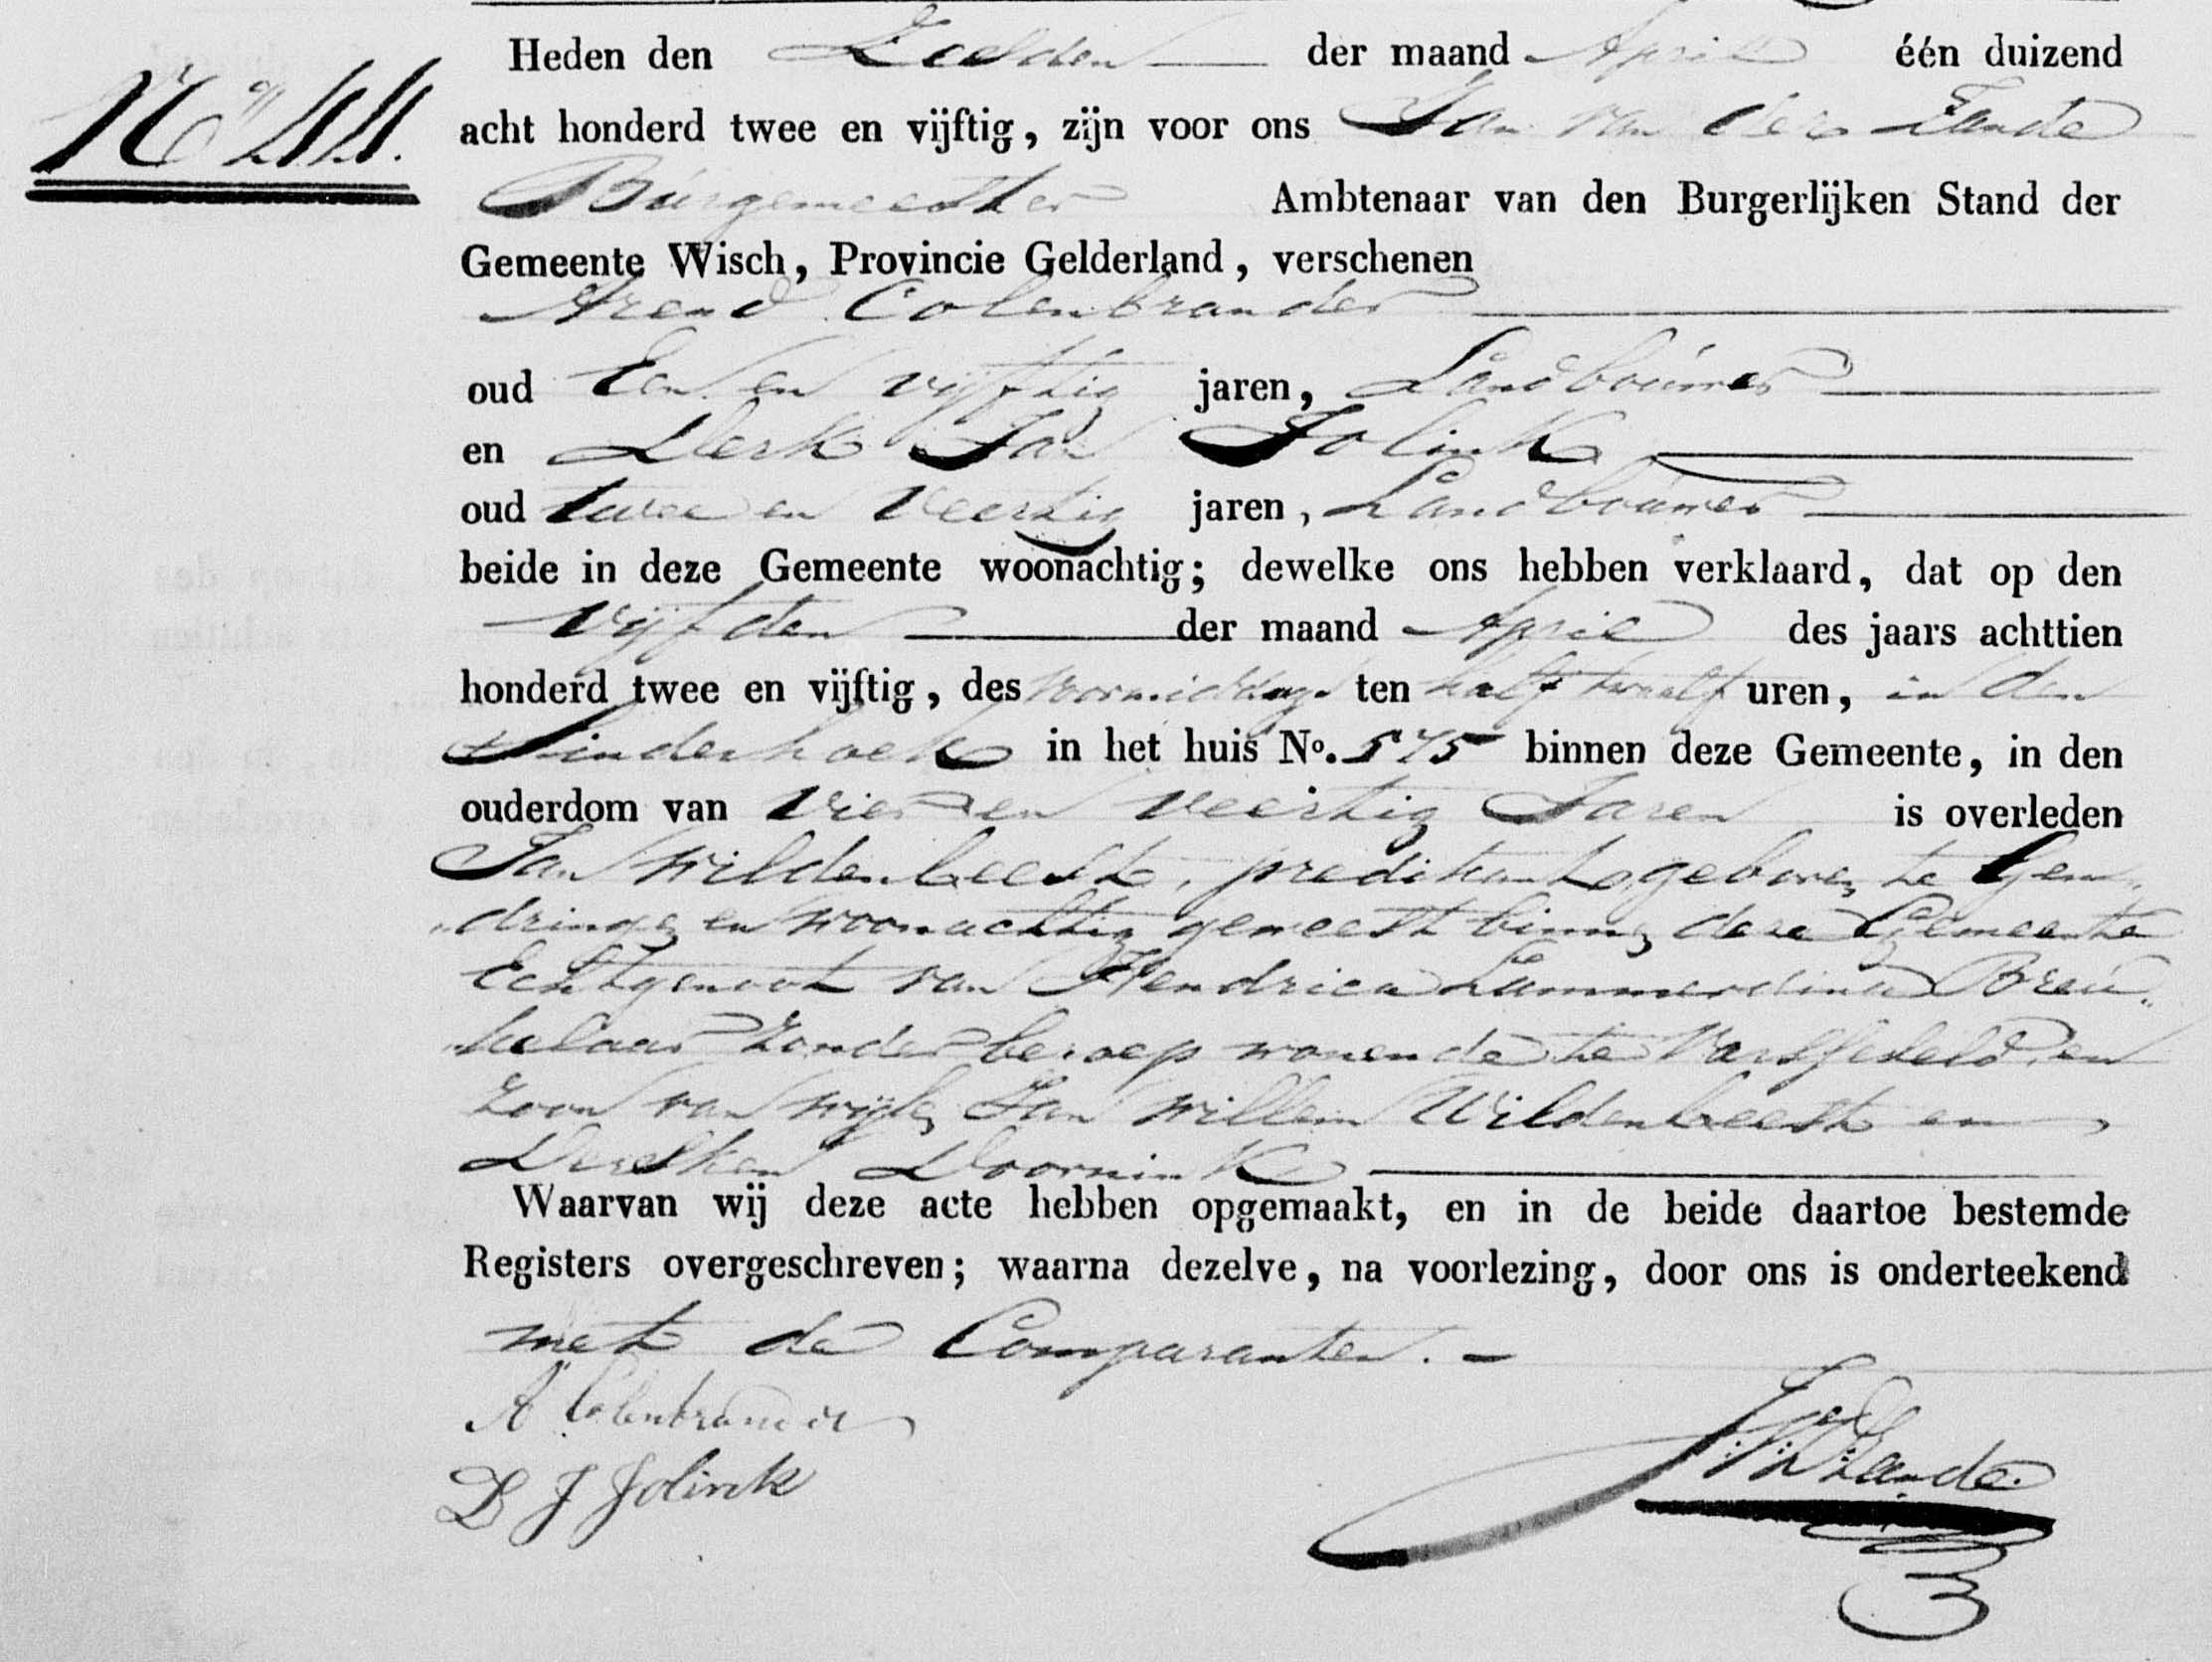 No 44.
Heden den Zesden der maand April één duizend
acht honderd twee en vijftig, zijn voor ons Jan van der Zande
Burgemeester Ambtenaar van den Burgerlijken Stand der
Gemeente Wisch, Provincie Gelderland, verschenen
Arend Colenbrander
oud Een en vijftig jaren, Landbouwer
en Derk Jan Jolink
oud twee en Veertig jaren, Landbouwer
beide in deze Gemeente woonachtig; dewelke ons hebben verklaard, dat op den
Vijfden der maand April des jaars achttien
honderd twee en vijftig, des voormiddags ten half twaalf uren, in den
Sinderhoek in het huis No. 575 binnen deze Gemeente, in den
ouderdom van Vier en Veertig Jaren is overleden
Jan Wildenbeest, predikant geboren te Gen„
„dringen en woonachtig geweest binnen deze Gemeente
Echtgenoot van Hendrica Lammerdina Breu„
„kelaar zonder beroep wonende te Varsseveld, en
zoon van wijlen Jan Willem Wildenbeest en
Deersken Doornink
Waarvan wij deze acte hebben opgemaakt, en in de beide daartoe bestemde
Registers overgeschreven; waarna dezelve, na voorlezing, door ons is onderteekend
met de Comparanten. -
A Colenbrander
D J Jolink
J. V. D. Zande.